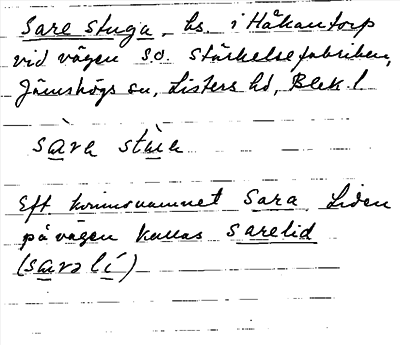 Sare stuga, hs. i Håkantorp
vid vägen s.o. Stärkelsefabriken,
Jämshögs sn, Listers hd, Blek. l.
sàra stùa
Eft. kvinnonamnet Sara. Liden
på vägen kallas Sarelid
(sarə lí)